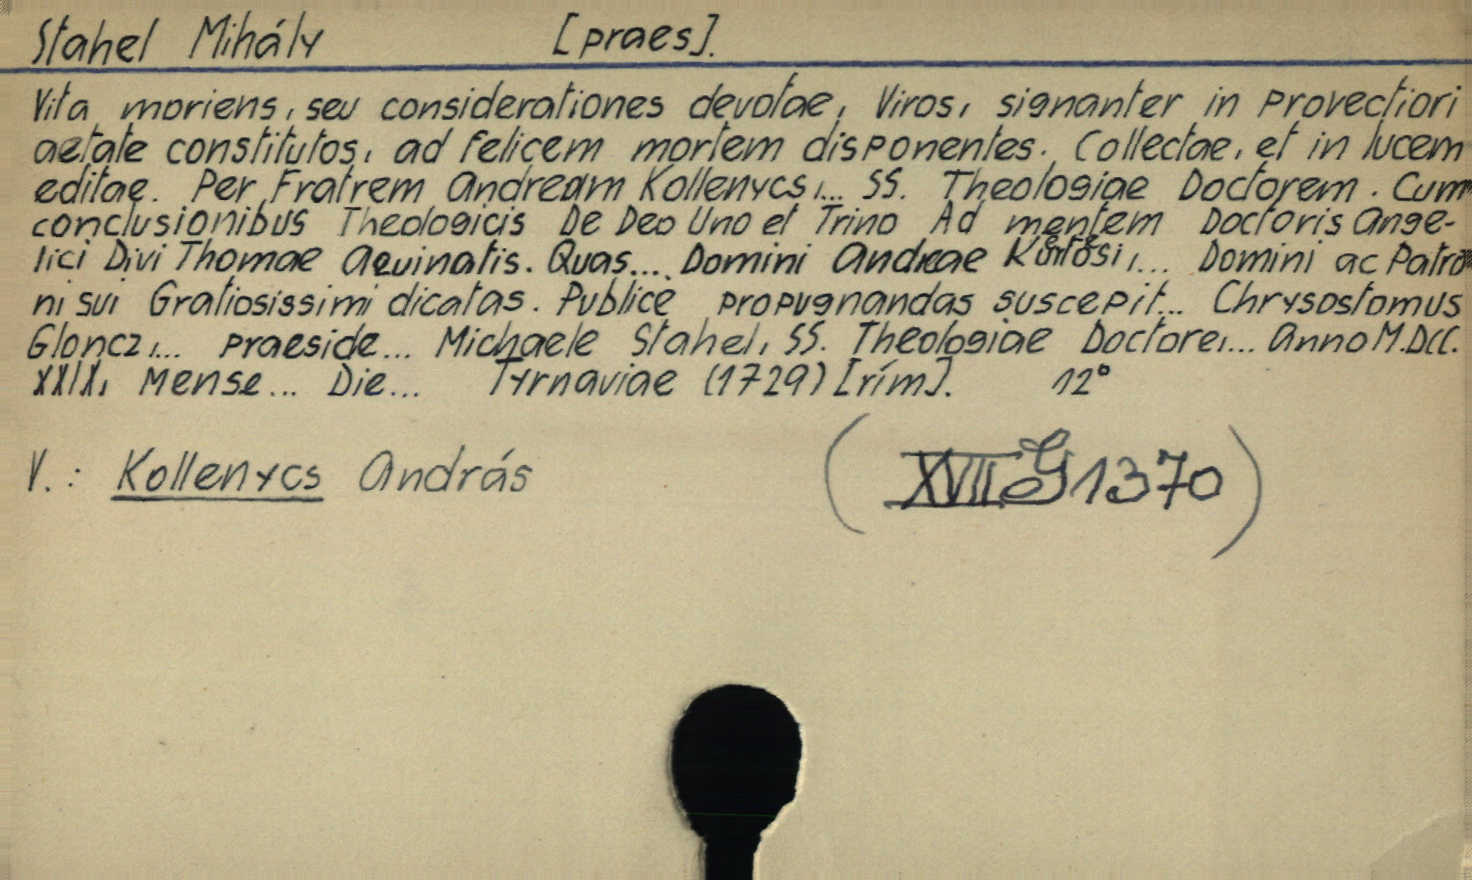 Stahel Mihály [praes].
Vita moriens, seu considerationes devotae, Viros, signanter in provectiori
aetate constitutos, ad felicem mortem disponentes. Collectae, et in lucem
editae. Per Fratrem Andream Kollenycs,... SS. Theologiae Doctorem. Cum
conclusionibus Theologicis De Deo Uno et Trino Ad mentem Doctoris Ange-
lici Divi Thomae Aquinatis. Quas.... Domini Andreae ... Domini ac Patro
ni sui Gratiosissimi dicatas. Publice propugnandas suscepit... Chrysostomus
Gloncz,... praeside... Michaele Stahel, SS. Theologiae Doctore,... Anno M.DCC.
XXIX, Mense... Die... Tyrnaviae (1729) [rím]. 12°
V.: Kollenycs András
(XVII G 1370)